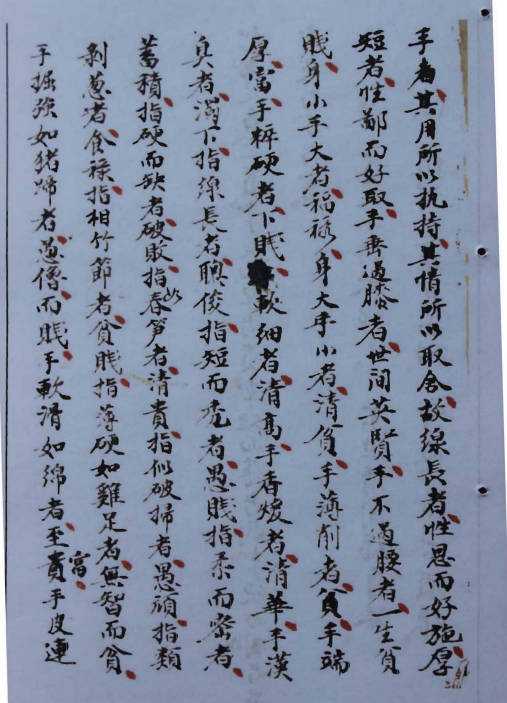 手者其用所以执持其情所以取舍故線長者性恩而好施厚
短者性鄙而好取手垂過膝者世间英賢手不過腰者一生貧
賎身小手大者福禄身大手小者清貧手薄削者貧手端
厚富手粹硬者下賎軟细者清高手香煖者清華手漢
臭者濁下指線長者聰俊指短而秃者愚賎指柔而密者
蓄積指硬而缺者破敗指如春笋者清貴指似破掃者愚頑指類
剝葱者食禄指相竹節者貧賎指薄硬如雞足者無智而貧
手掘強如猪蹄者愚僧而賎手軟滑如绵者至富貴手皮連